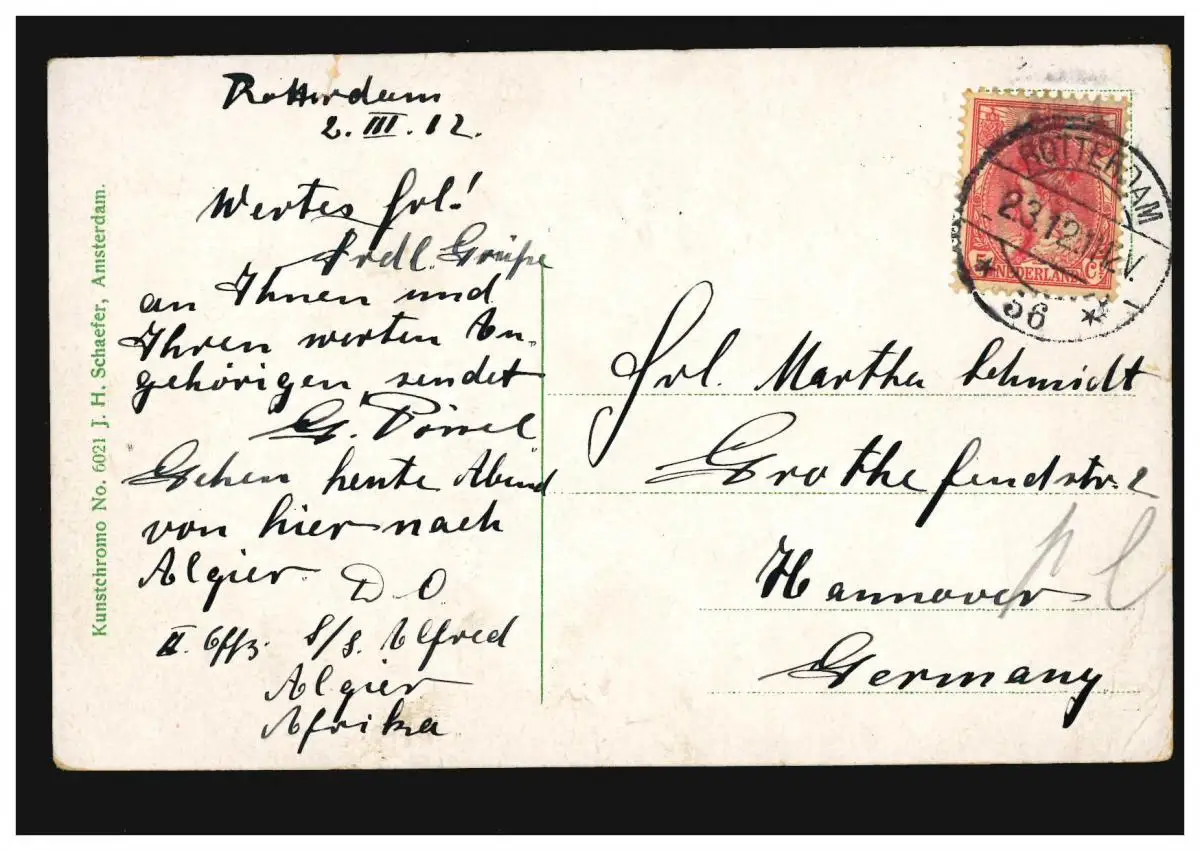 Rotterdam
2. III. 12.
Wertes Frl!
Frdl. Grüße
an Ihnen und
Ihren werten An-
gehörigen sendet
G.
Gehen heute Abend
von hier nach
Algier.
D O
II. Offz. S/S. Alfred
Algier
Afrika
Kunstchromo No. 6021 J. H. Schaefer, Amsterdam.
ROTTERDAM
2 3.12.
V
56
5 NEDERLAND C
Frl. Martha Schmidt
Grothefendstr. 2
Hannover
Germany